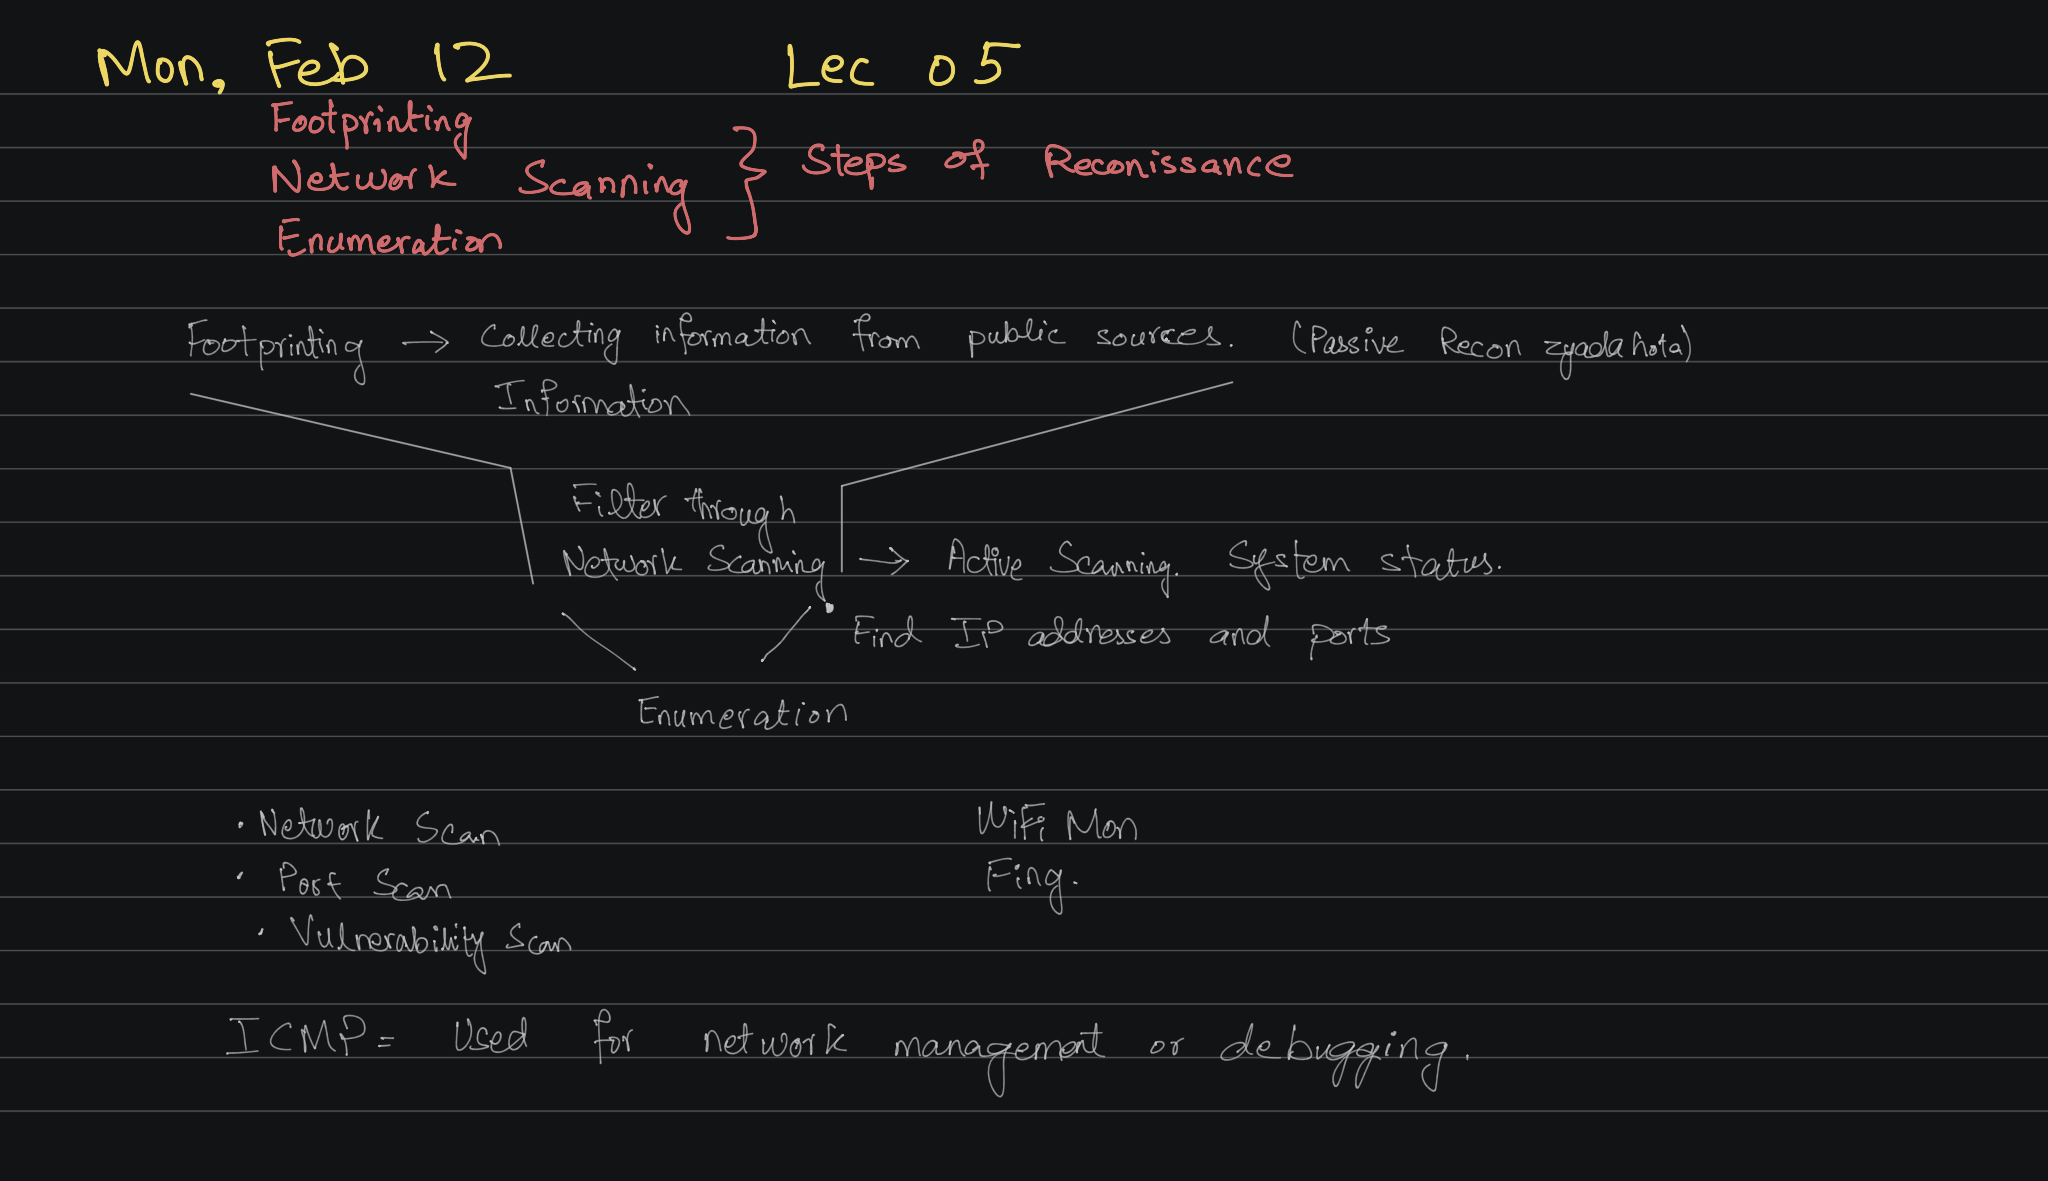 Mon, Feb 12 Lec 05
Footprinting
Network Scanning } Steps of Reconissance
Enumeration
Footprinting → Collecting information from public sources. (Passive Recon zyada hota)
Information
Filter through
Network Scanning → Active Scanning. System status.
Find IP addresses and ports
Enumeration
• Network Scan WiFi Mon
• Port Scan Fing.
• Vulnerability Scan
ICMP = Used for network management or debugging.